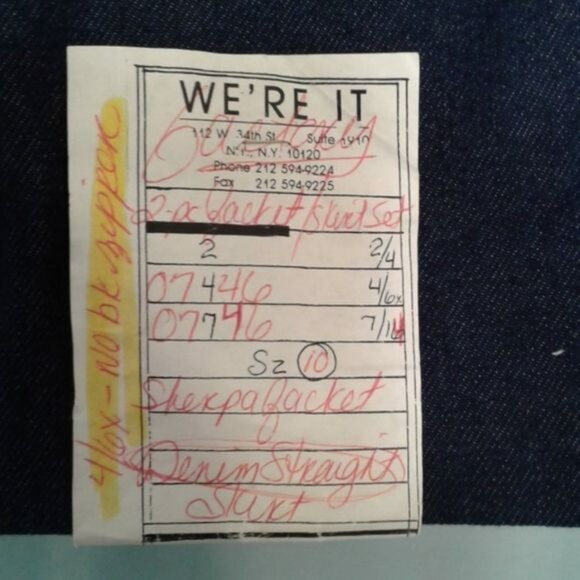 WE'RE IT
112 W. 34th St. Suite 1910
N.Y., N.Y. 10120
Phone 212 594-9224
Fax 212 594-9225
2-pc Jacket/Skirt Set
2 2/4
07446 4/6x
07746 7/14
Sz 10
Sherpa Jacket
Denim Straight
Skirt
4/6x - No bk zipper